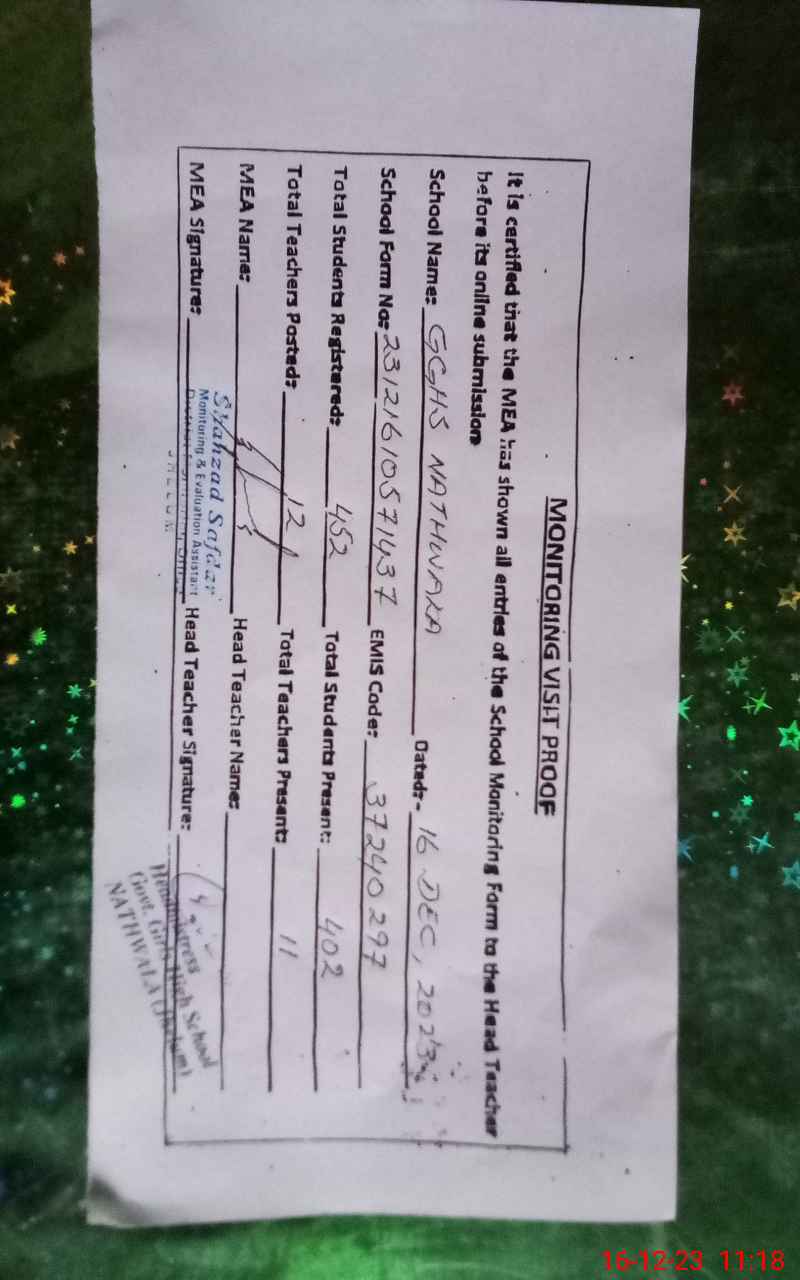 MONITORING VISIT PROOF
It is certified that the MEA has shown all entries of the School Monitoring Form to the Head Teacher
before its online submission
School Name: GGHS NATHWALA Dated:- 16 DEC, 2023
School Form No: 23121610571437 EMIS Code: 37240297
Total Students Registered: 452 Total Students Present: 402
Total Teachers Posted: 12 Total Teachers Present: 11
MEA Name: Head Teacher Name:
Shahzad Safdar
Monitoring & Evaluation Assistant
MEA Signature: Head Teacher Signature:
JHELUM
Headmistress
Govt. Girls High School
NATHWALA (Jhelum)
16-12-23 11:18